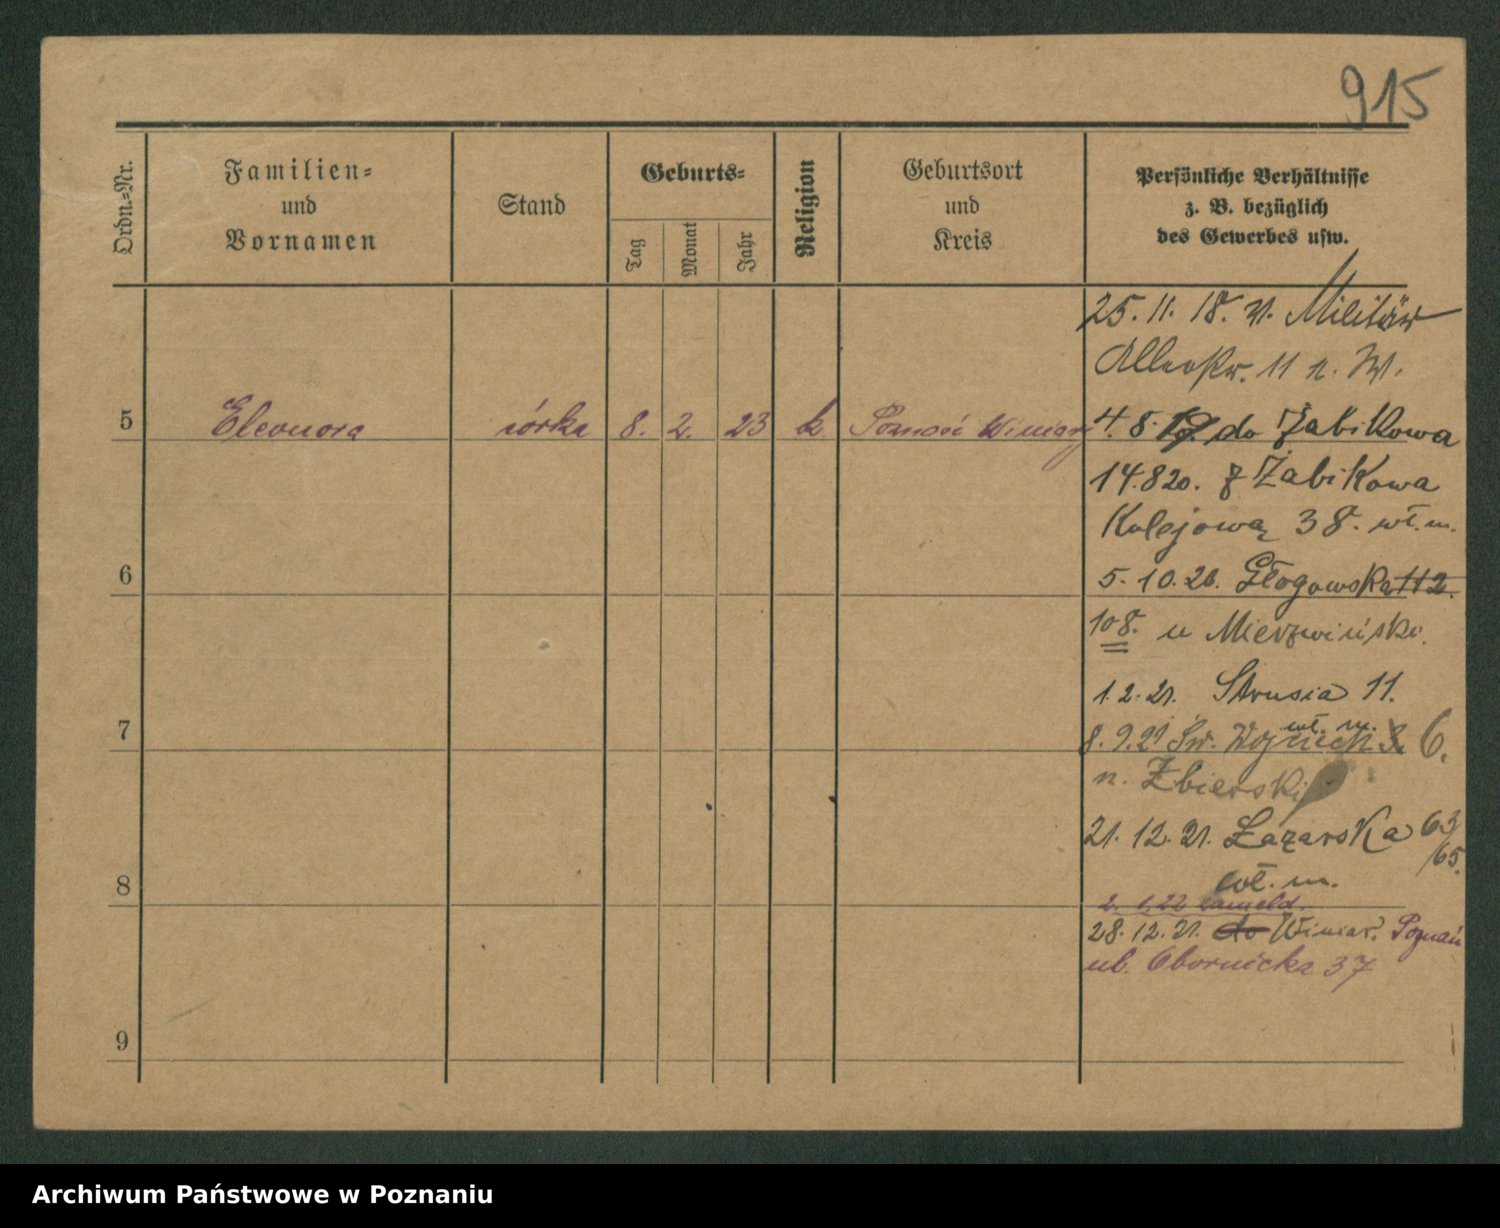 915
Ordn.-Nr.
Familien-
und
Vornamen
Stand
Geburts-
Tag
Monat
Jahr
Religion
Geburtsort
und
Kreis
Persönliche Verhältnisse
z. B. bezüglich
des Gewerbes usw.
25. 11. 18. v. Militär
11 n. W.
5 Eleonora córka 8. 2. 23 k Poznań Winiary
4. 8. do Żabikowa
14.8 20. z Żabikowa
Kolejowa 38. wł. m.
6
5. 10. 20. Głogowska 112.
108. u Mierzwiński.
1. 2. 21. Strusia 11.
wł. m.
7
8. 9. 21 Św. Wojciech 6.
n. Zbierski
21. 12. 21. Łazarska 63/65.
wł. m.
8
2. 1. 22 zameld.
28. 12. 21. do Winiar. Poznań
ul. Obornicka 37
9
Archiwum Państwowe w Poznaniu